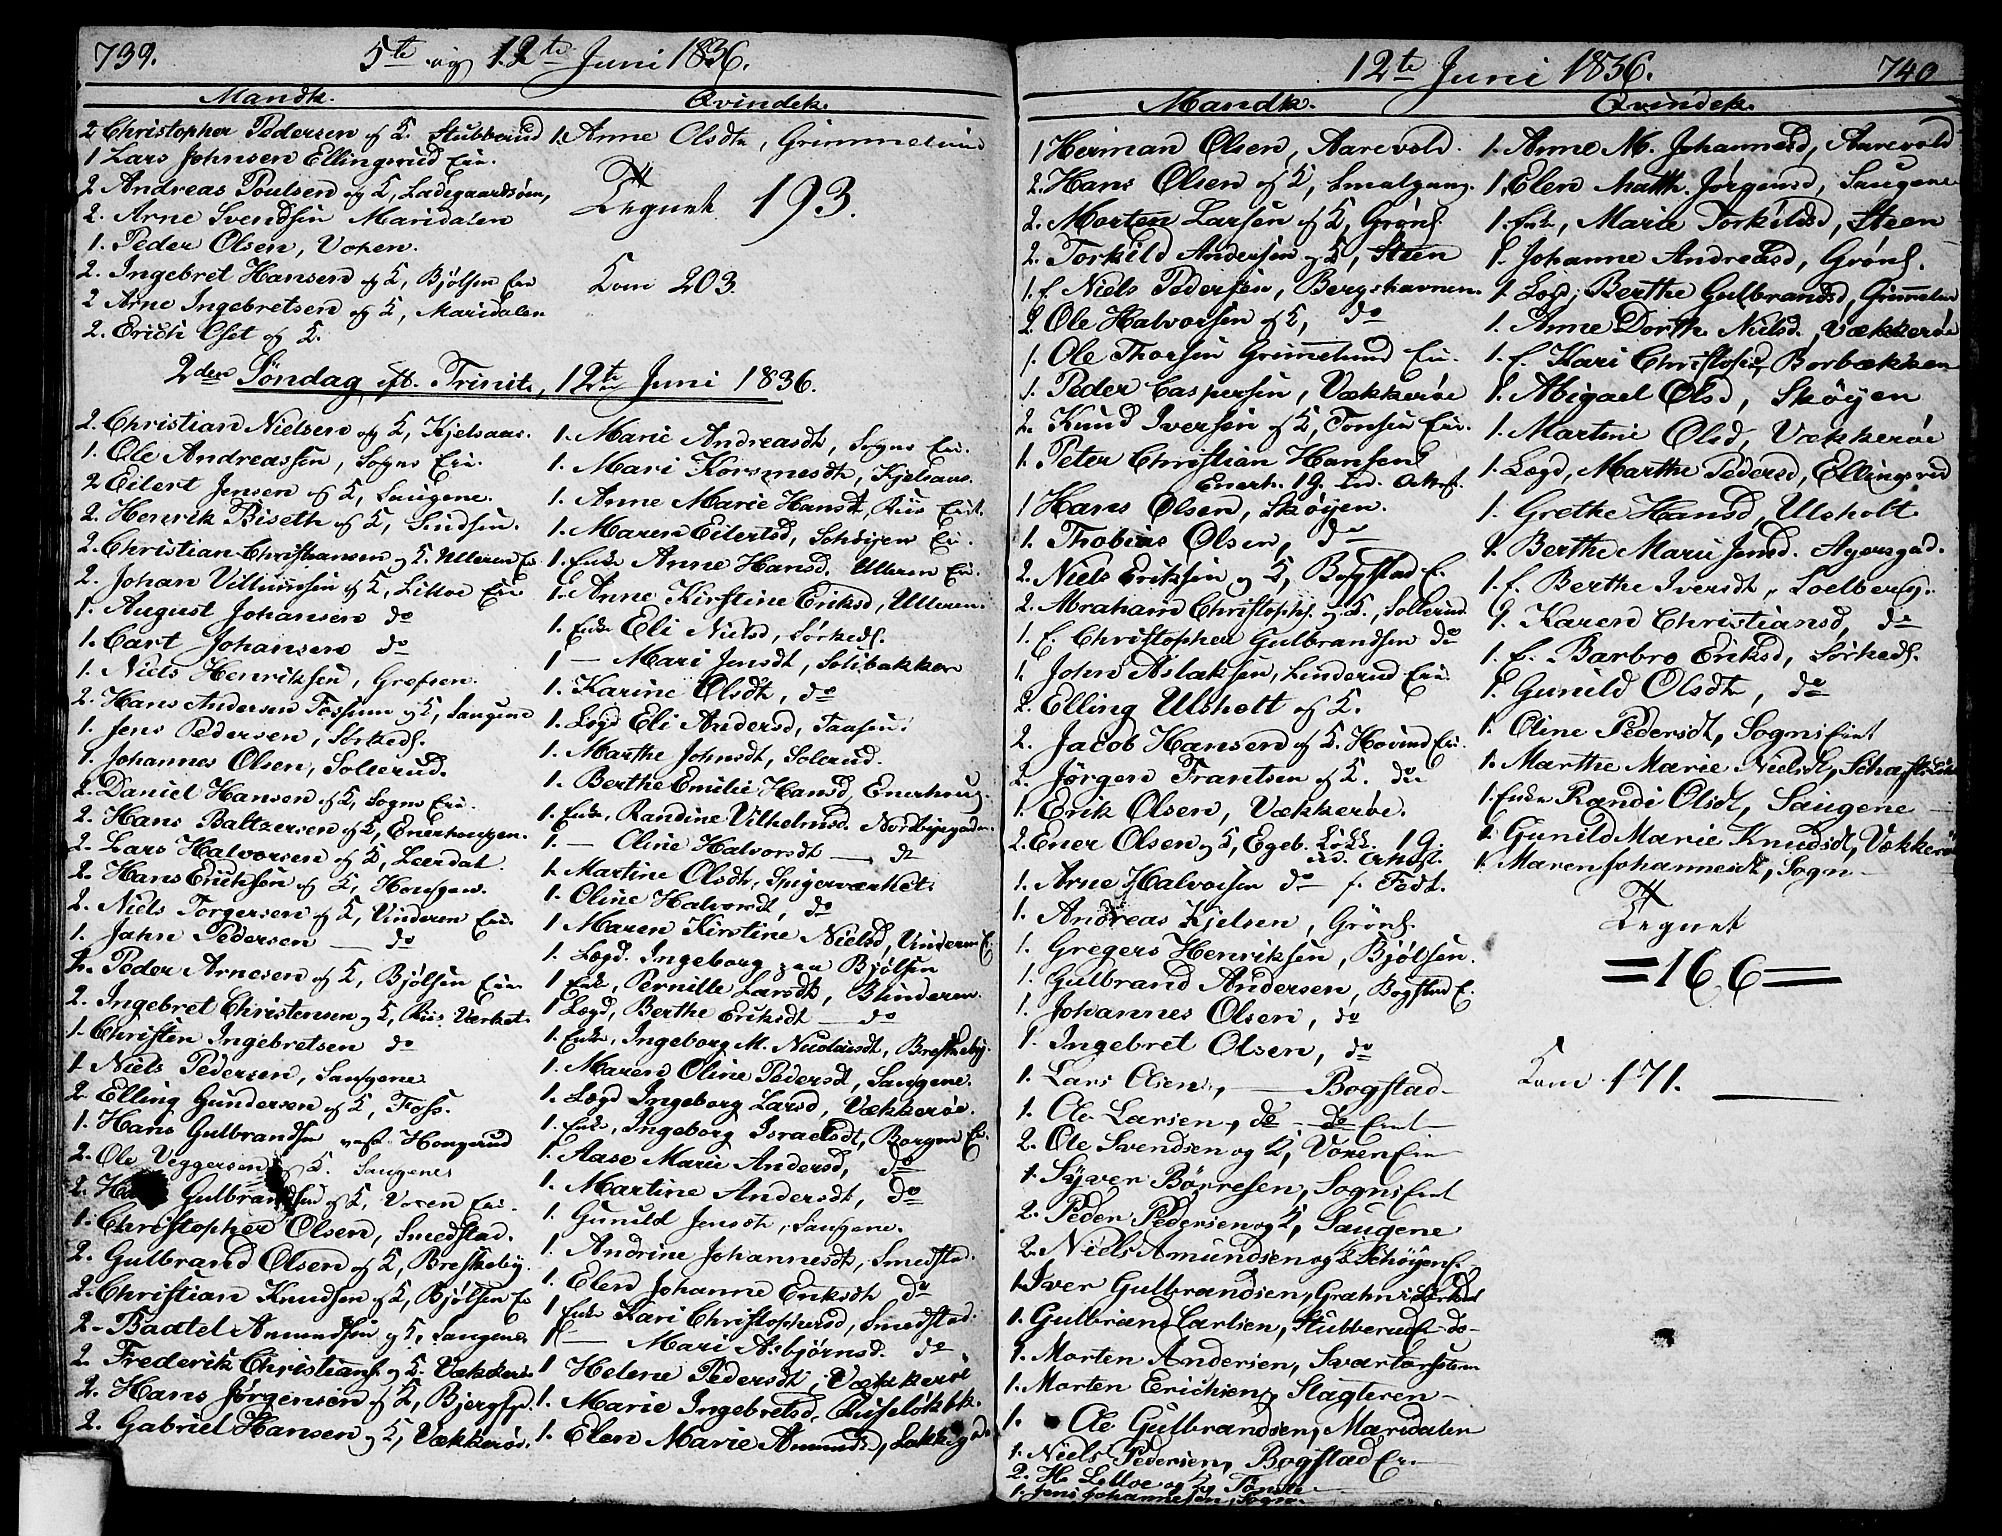 739.
5te og 12te Juni 1836.
Mandk.
Qvindek.
2 Christopher Pedersen og K. Stubberud
1 Lars Johnsen Ellingsrud Eie.
2 Andreas Poulsen og K, Ladegaardsøen,
2. Arne Svendsen Maridalen
1. Peder Olsen, Voxen.
2. Ingebret Hansen og K, Bjølsen Eie
2 Arne Ingebretsen og K, Maridalen
2. Erich Oset og K.
1. Anne Olsdtr, Grimmelund
Tegnet 193.
Kom 203.
2den Søndag eft. Trinit, 12te Juni 1836.
2. Christian Nielsen og K, Kjelsaas.
1. Ole Andreassen, Sogns Eie.
2 Eilert Jensen og K, Saugene.
2. Henrik Biseth og K, Lindsen.
2. Christian Christiansen og K. Ulleren Ei
2. Johan Villumsen og K, Lilloe Eie
1. August Johansen do
1. Carl Johansen do
1. Niels Henriksen, Grefsen.
2. Hans Andersen Fossum og K, Saugene
1. Jens Pedersen, Sørkeds.
1. Johannes Olsen, Sollerud.
2. Daniel Hansen og K, Sogns Eie.
2. Hans Baltzersen og K, Enerhougen.
2. Lars Halvorsen og K, Leerdal.
2. Hans Eriksen og K, Hougen.
2. Niels Torgersen og K, Vinderen Eie.
1. Jahn Pedersen — do
2. Peder Arnesen og K, Bjølsen Eie
2. Ingebret Christensen og K, Riis Værket.
1. Christen Ingebretsen do
1. Niels Pedersen, Saugene
2. Elling Gundersen og K, Foss.
1. Hans Gulbrandsen Hougerud
2. Ole Veggersen K. Saugene
2. Gulbrandsen og K, Voxen Eie.
1. Christopher Olsen, Smedstad.
2. Gulbrand Olsen og K, Breskeby.
2. Christian Knudsen og K, Bjølsen Ei
2. Baatel Amundsen og K, Saugene,
2. Frederik Christians. og K. Vækkerø
2. Hans Jørgensen og K, Bjergsgd.
2. Gabriel Hansen og K, Vækkerøe.
1. Marie Andreasdt, Sogns Eie.
1. Mari Korsmesdt, Kjelsaas.
1. Anne Marie Hansdt, Riis Eie.
1. Maren Eilertsd, Schøyen Ei.
1. Enke Anne Hansd. Ulleren Ei.
1. Anne Kirstine Eriksd, Ulleren.
1. Enke Eli Nielsd, Sørkeds.
1 — Mari Jensdt, Solibakken
1. Karine Olsdt, do
1. Lægd Eli Andersd, Taasen.
1. Marthe Johnsdt, Solerud.
1. Berthe Emilie Hansd, Enerhoug.
1. Enke, Randine Vilhelmsd. Nordbygaden
1. — Oline Halvorsdt — do
1. Martine Olsdt, Spigerværket.
1. Oline Halvorsdt, do
1 Maren Kirstine Nielsd, Vinderen E.
1. Lægd. Ingeborg paa Bjølsen
1 Enke, Pernille Larsdt, Blinderen.
1 Lægd, Berthe Eriksdt — do
1. Enke, Ingeborg M. Nicolaisdt, Breskeby.
1. Maren Oline Pedersdt, Saugene.
1. Lægd Ingeborg Larsd, Vækkerøe.
1. Enke, Ingeborg Israelsdt, Borgen Ei.
1. Aase Marie Andersd, do
1. Martine Andersdt, do
1. Gunild Jensdt, Saugene.
1. Andrine Johannesdt, Smedstad.
1. Elen Johanne Eriksdt do
1 Enke Kari Christophersd, Smedstad.
1 — Mari Asbjørnsd. do
1 Helene Pedersdt, Vækkerøe
1. Marie Ingebretsd, Ruseløkbk.
1. Elen Marie Amunds, Lakkegad
12te Juni 1836.
740
Mandk.
Qvindek.
1 Herman Olsen, Aarevold.
2. Hans Olsen og K, Smalgang.
2. Morten Larsen og K, Grøns.
2. Torkild Andersen og K, Steen
1. f. Niels Pedersen, Bergshavnen.
2. Ole Halvorsen og K, do
1. Ole Thorsen Grimelund Eie.
1. Peder Caspersen, Vækkerøe
2. Knud Iversen og K, Tonsen Eie.
1. Peter Christian Hansen
Enerh. 1 G. Ind. Arkest.
1 Hans Olsen, Skøyen.
1. Thobias Olsen, do
2. Niels Eriksen og K, Bogstad E.
2. Abraham Christophs. og K, Sollerud
1. f. Christopher Gulbrandsen do
1. John Aslaksen, Linderud Eie.
2. Elling Ulsholt og K.
2. Jacob Hansen og K. Hovind Eie.
2. Jørgen Frantsen og K. do
1. Erik Olsen, Vækkerøe.
2. Ener Olsen og K, Egeb. Løkk. 1 G.
Ind. Arkest.
1. Arne Halvorsen do f. Fedt.
1. Andreas Kjelsen, Grøns.
1. Gregers Henriksen, Bjølsen.
1. Gulbrand Andersen, Bogstad E.
1. Johannes Olsen, do
1. Ingebret Olsen, do
1. Lars Olsen, — Bogstad
1. Ole Larsen, do — do Eiet
2. Ole Svendsen og K, Voxen Eie
1. Syver Børresen, Sogns Eiet
2. Peder Pedersen og K, Saugene
2. Niels Amundsen og K Schøyens.
1. Iver Gulbrandsen, Græhn i Sørked
1. Gulbrand Carlsen, Stubberud do
1. Morten Andersen, Svartorsteen
1. Morten Erichsen, Slagteren
1. Ole Gulbrandsen, Maridalen
1. Niels Pedersen, Bogstad Eie.
2. H. Lilloe og K, Tonsen
1. Jens Johannesen, Sogn
1. Anne M. Johannesd, Aarevold
1. Elen Math. Jørgensd, Saugene
1. Enke, Marie Torkildsd, Steen
1. Johanne Andreasd, Grøns.
1. Lægd, Berthe Gulbrandsd, Grimelun
1. Anne Dorth. Nielsd, Vækkerøe
1. f. Kari Christofsd, Borbækken
1. Abigael Olsd, Skøyen
1. Martine Olsd, Vækkerøe
1. Lægd, Marthe Pedersd, Ellingsrud
1. Grethe Hansd, Ulsholt
1. Berthe Marie Jensd. Agersgad.
1. f. Berthe Iversdt, Soelberg.
1. Karen Christiansd, do
1. f. Barbro Eriksd, Sørkeds.
1. Gunild Olsdt, do
1. Oline Pedersdt, Sogns Eiet
1. Marthe Marie Nielsdt,
1. Enke Randi Olsdt, Saugene
1. Gunild Marie Knudsdt, Vækkerø
1. Maren Johannesdt, Sogn
Tegnet
=166=
Kom 171.